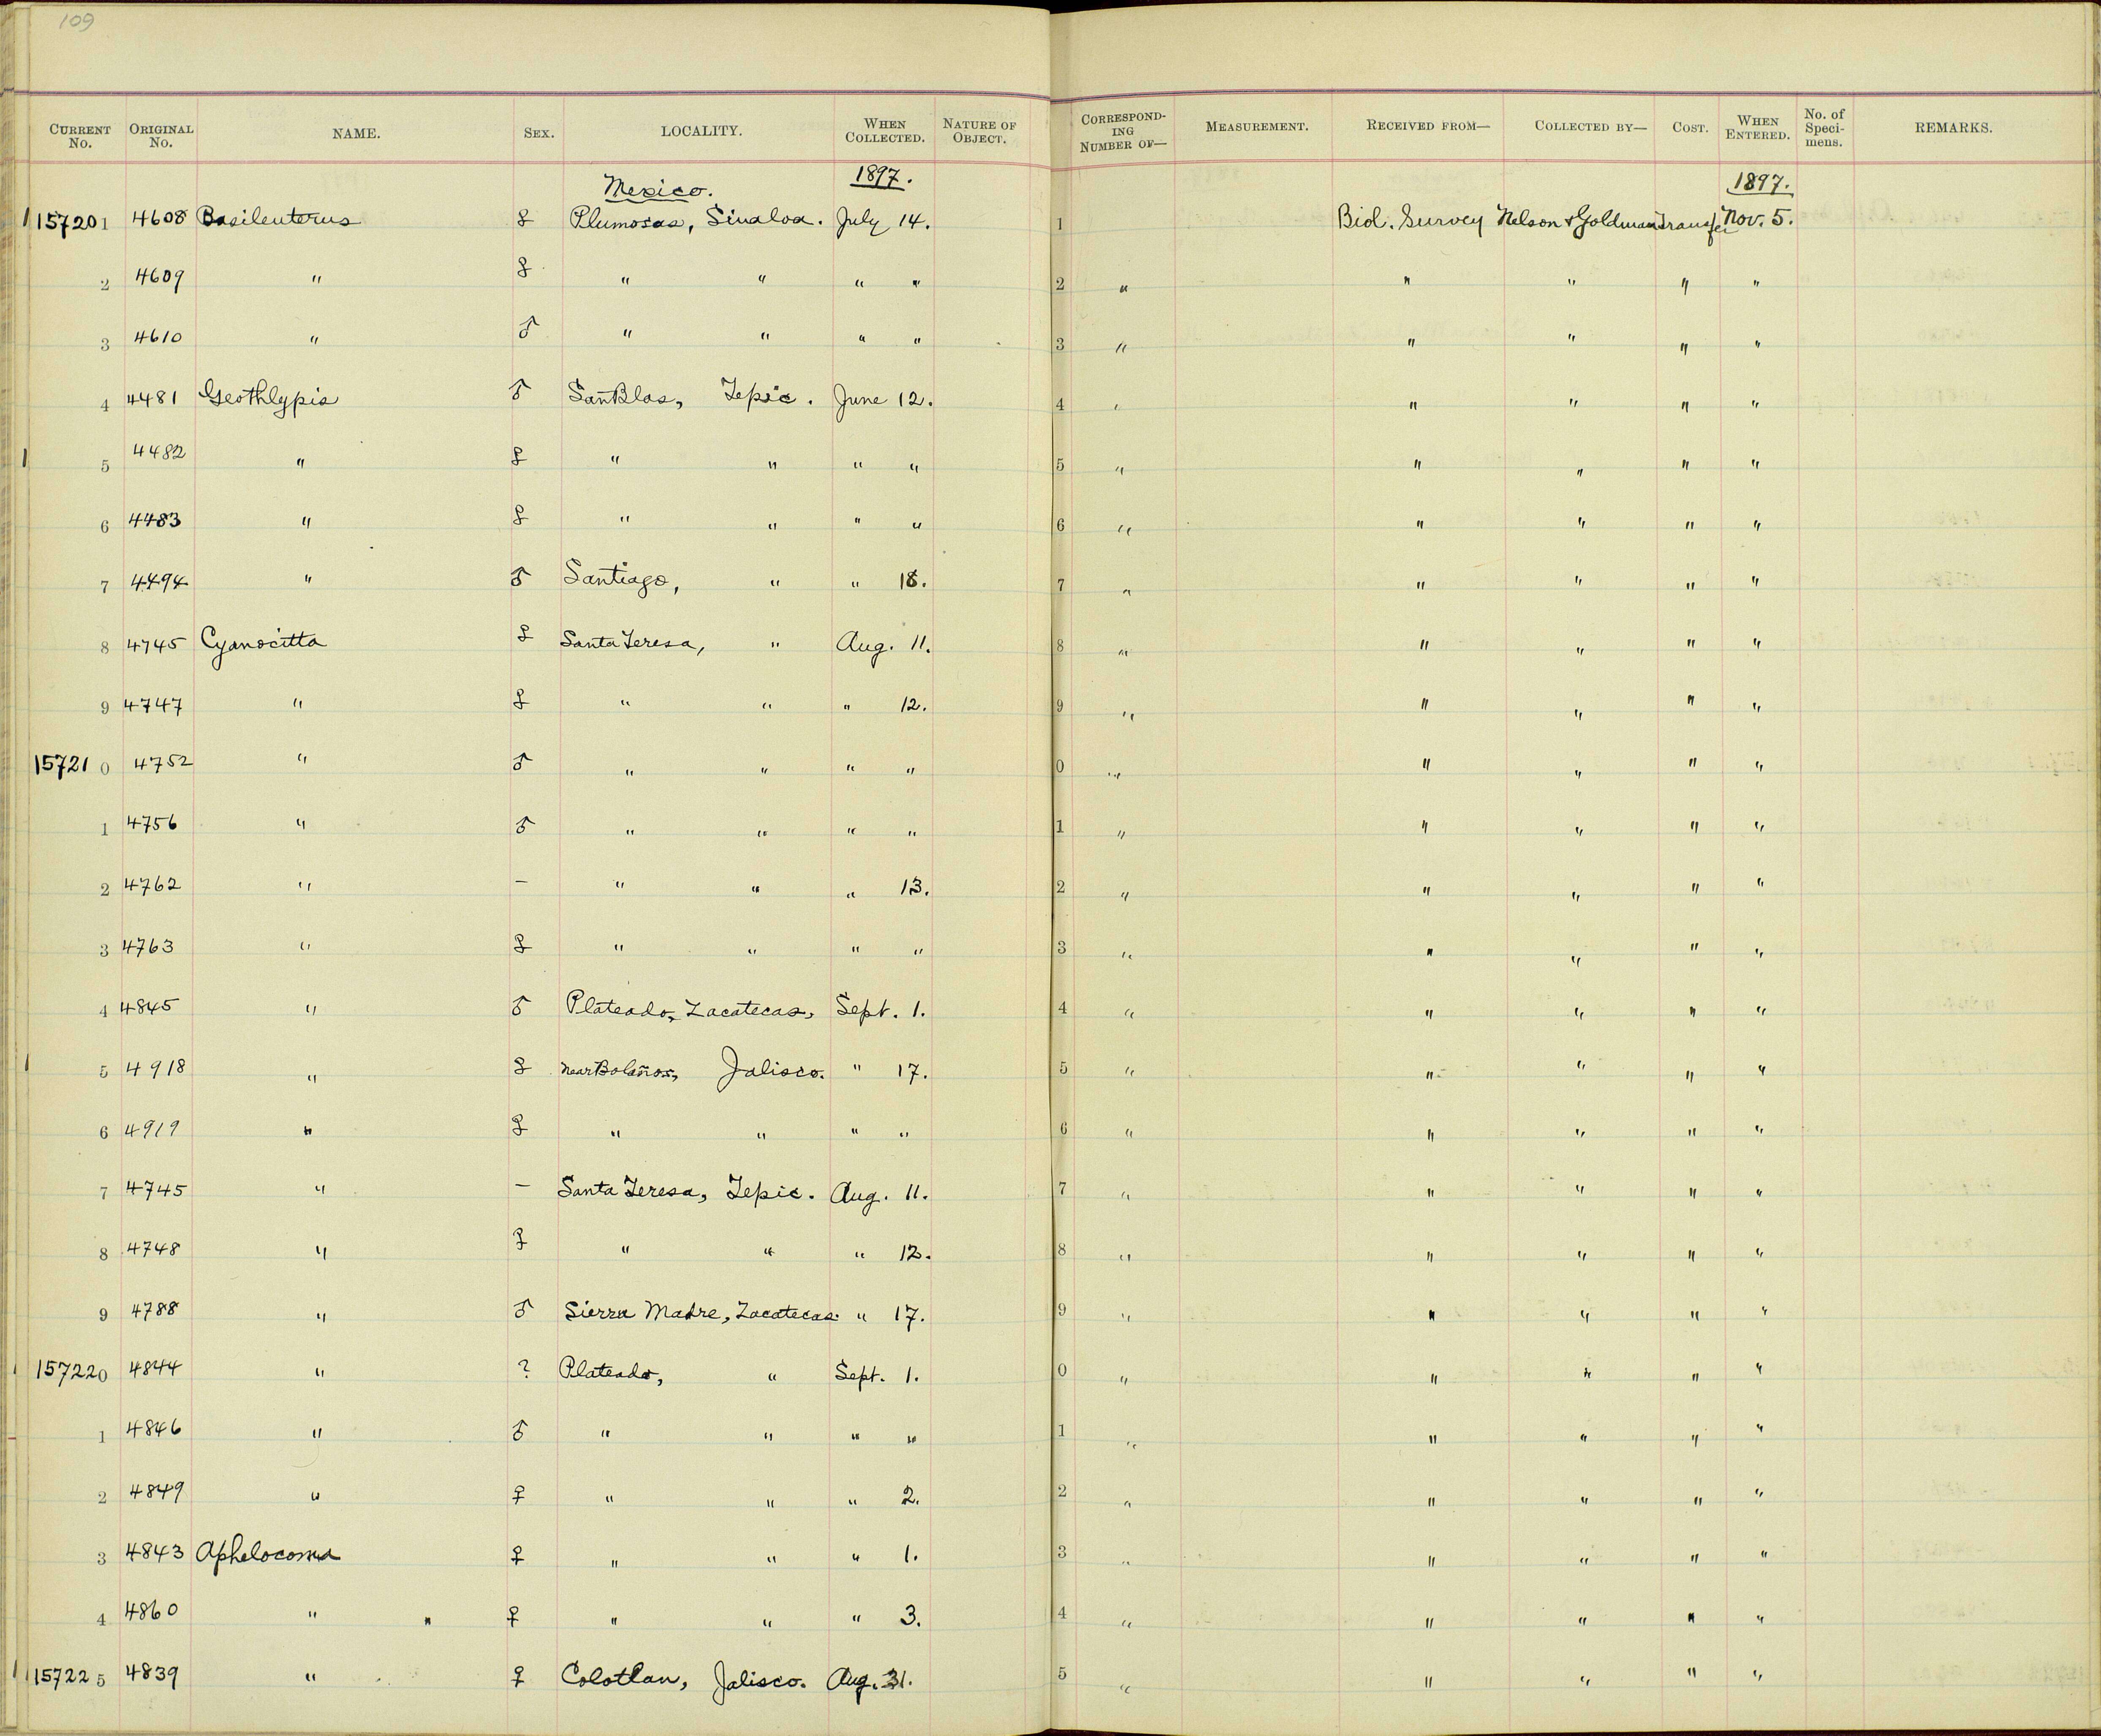 109
CURRENT No. ORIGINAL No. NAME. SEX. LOCALITY. WHEN COLLECTED. NATURE OF OBJECT. CORRESPONDING NUMBER OF— MEASUREMENT. RECEIVED FROM— COLLECTED BY— COST. WHEN ENTERED. No. of Specimens. REMARKS.
Mexico. 1897. 1897.
157201 4608 Basileuterus ♀ Plumosas, Sinaloa. July 14. 1 Biol. Survey Nelson & Goldman Transfer Nov. 5.
2 4609 " ♀ " " " " 2 " " " " "
3 4610 " ♂ " " " " 3 " " " " "
4 4481 Geothlypis ♂ San Blas, Tepic. June 12. 4 " " " " "
5 4482 " ♀ " " " " 5 " " " " "
6 4483 " ♀ " " " " 6 " " " " "
7 4494 " ♂ Santiago, " " 18. 7 " " " " "
8 4745 Cyanocitta ♀ Santa Teresa, " Aug. 11. 8 " " " " "
9 4747 " ♀ " " " 12. 9 " " " " "
157210 4752 " ♂ " " " " 0 " " " " "
1 4756 " ♂ " " " " 1 " " " " "
2 4762 " – " " " 13. 2 " " " " "
3 4763 " ♀ " " " " 3 " " " " "
4 4845 " ♂ Plateado, Zacatecas, Sept. 1. 4 " " " " "
5 4918 " ♀ near Bolaños, Jalisco. " 17. 5 " " " " "
6 4919 " ♀ " " " " 6 " " " " "
7 4745 " – Santa Teresa, Tepic. Aug. 11. 7 " " " " "
8 4748 " ♀ " " " 12. 8 " " " " "
9 4788 " ♂ Sierra Madre, Zacatecas. " 17. 9 " " " " "
157220 4844 " ? Plateado, " Sept. 1. 0 " " " " "
1 4846 " ♂ " " " " 1 " " " " "
2 4849 " ♀ " " " 2. 2 " " " " "
3 4843 Aphelocoma ♀ " " " 1. 3 " " " " "
4 4860 " " ♀ " " " 3. 4 " " " " "
157225 4839 " ♀ Colotlan, Jalisco. Aug. 31. 5 " " " " "